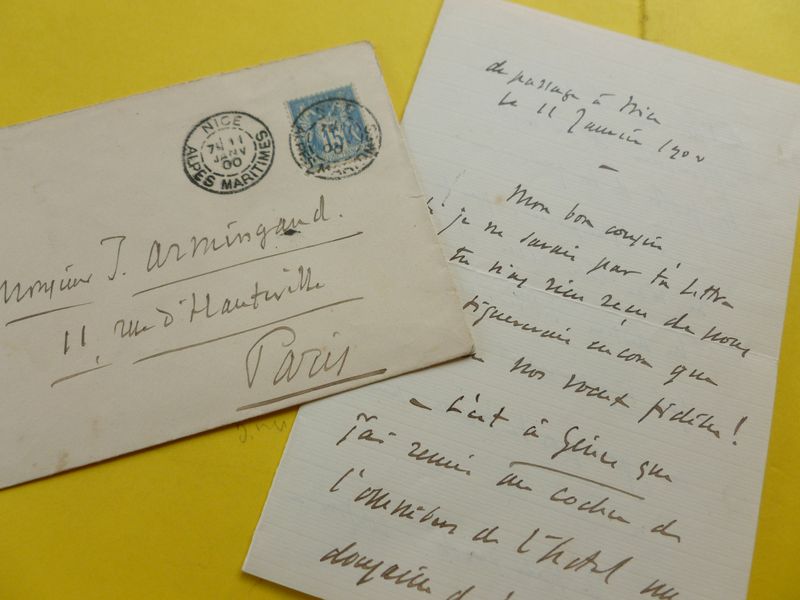 NICE
7E 11
JANV
00
ALPES MARITIMES
15
Monsieur J. Armingaud.
11, rue d'Hauteville
Paris
de passage à Nice
le 11 Janvier 1900
Mon bon cousin!
je ne savais par ta lettre
tu n'as rien reçu de nous
encore que
nos sont fidèles!
- C'est à Gênes que
j'ai remis au cocher de
l'omnibus de l'hôtel une
douzaine